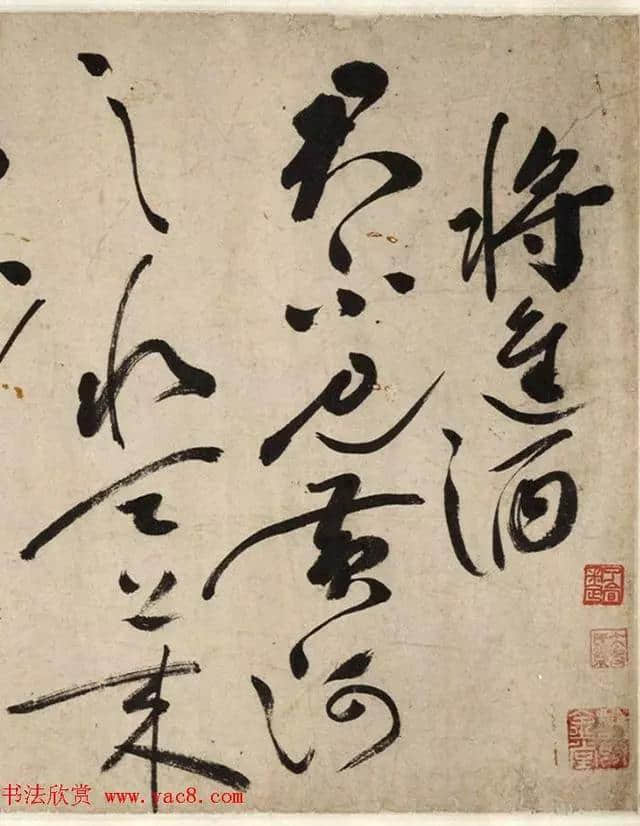 将進酒
君不見黄河
之水天上来
书法欣赏 www.yac8.com